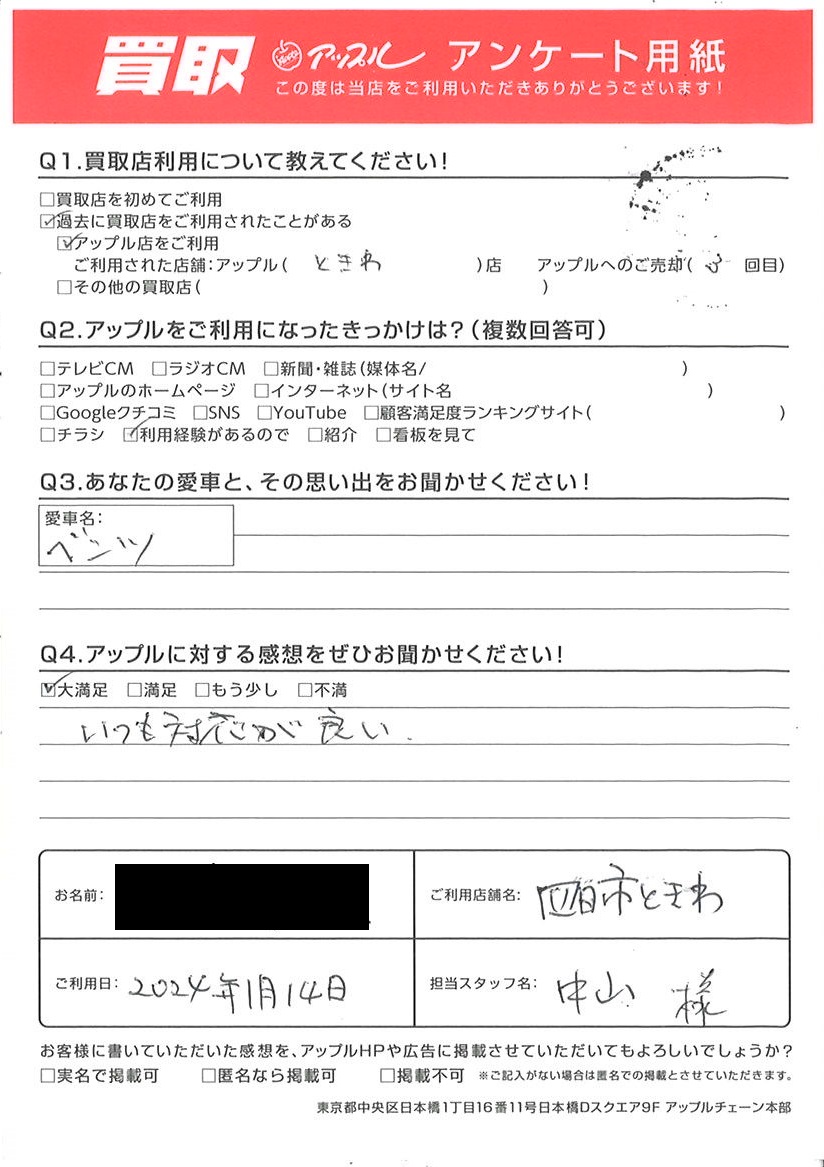 買取 アップル アンケート用紙
この度は当店をご利用いただきありがとうございます!
Q1.買取店利用について教えてください!
□買取店を初めてご利用
☑過去に買取店をご利用されたことがある
☑アップル店をご利用
ご利用された店舗:アップル( ときわ )店 アップルへのご売却( 3 回目)
□その他の買取店( )
Q2.アップルをご利用になったきっかけは?(複数回答可)
□テレビCM □ラジオCM □新聞・雑誌(媒体名/ )
□アップルのホームページ □インターネット(サイト名 )
□Googleクチコミ □SNS □YouTube □顧客満足度ランキングサイト( )
□チラシ ☑利用経験があるので □紹介 □看板を見て
Q3.あなたの愛車と、その思い出をお聞かせください!
愛車名:
ベンツ
Q4.アップルに対する感想をぜひお聞かせください!
☑大満足 □満足 □もう少し □不満
いつも対応が良い.
お名前:
ご利用店舗名: 四日市ときわ
ご利用日: 2024年1月14日
担当スタッフ名: 中山 様
お客様に書いていただいた感想を、アップルHPや広告に掲載させていただいてもよろしいでしょうか?
□実名で掲載可 □匿名なら掲載可 □掲載不可 ※ご記入がない場合は匿名での掲載とさせていただきます。
東京都中央区日本橋1丁目16番11号日本橋Dスクエア9F アップルチェーン本部